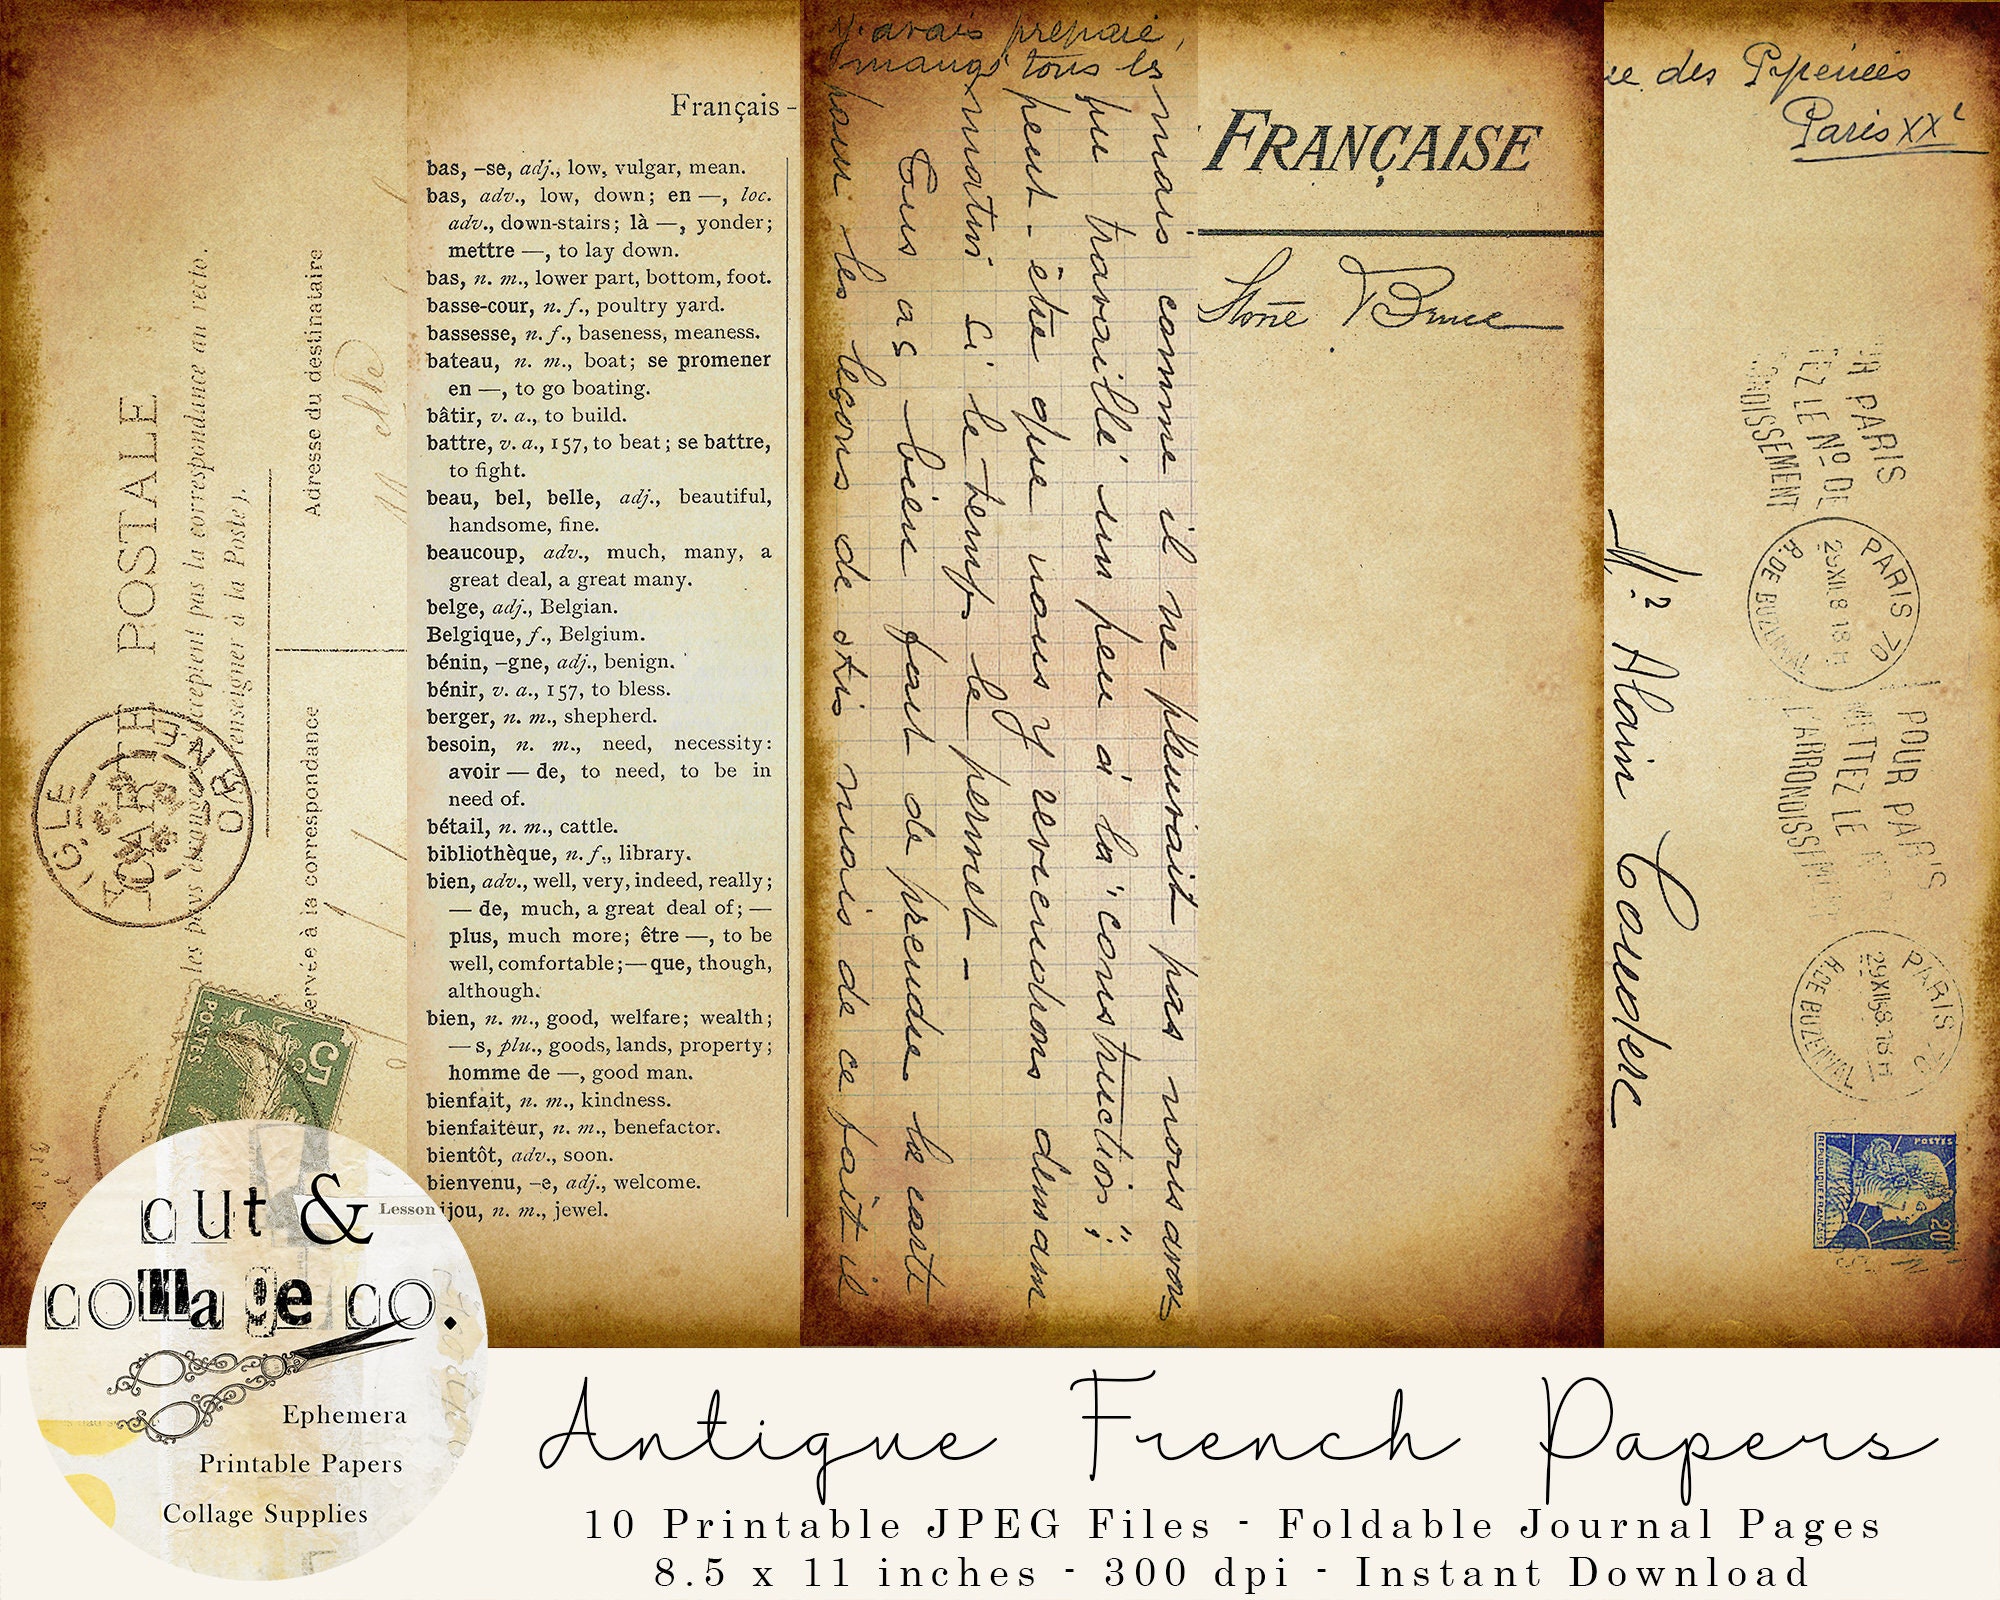 CARTE POSTALE
les pays étrangers n'acceptent pas la correspondance au recto.
renseigner à la Poste).
Adresse du destinataire
ervée à la correspondance
AIGLE
ORNE
POSTES
5c
Français -
bas, –se, adj., low, vulgar, mean.
bas, adv., low, down; en —, loc.
adv., down-stairs; là —, yonder;
mettre —, to lay down.
bas, n. m., lower part, bottom, foot.
basse-cour, n. f., poultry yard.
bassesse, n. f., baseness, meaness.
bateau, n. m., boat; se promener
en —, to go boating.
bâtir, v. a., to build.
battre, v. a., 157, to beat; se battre,
to fight.
beau, bel, belle, adj., beautiful,
handsome, fine.
beaucoup, adv., much, many, a
great deal, a great many.
belge, adj., Belgian.
Belgique, f., Belgium.
bénin, –gne, adj., benign.
bénir, v. a., 157, to bless.
berger, n. m., shepherd.
besoin, n. m., need, necessity:
avoir — de, to need, to be in
need of.
bétail, n. m., cattle.
bibliothèque, n. f., library.
bien, adv., well, very, indeed, really;
— de, much, a great deal of; —
plus, much more; être —, to be
well, comfortable; — que, though,
although.
bien, n. m., good, welfare; wealth;
— s, plu., goods, lands, property;
homme de —, good man.
bienfait, n. m., kindness.
bienfaiteur, n. m., benefactor.
bientôt, adv., soon.
bienvenu, –e, adj., welcome.
ijou, n. m., jewel.
j'avais préparé,
mangé tous les
mais comme il ne pleuvait pas nous avons
pu travaillé un peu à la "construction";
peut-être que nous y reviendrons demain
matin si le temps le permet —
Tu as bien fait de prendre la carte
pour les leçons de skis mais de ce fait il
FRANÇAISE
Bruce
ue des Pyrénées
Paris XXe
Alain
POUR PARIS
METTEZ LE Nº DE
L'ARRONDISSEMENT
PARIS 70
R. DE BUZENVAL
POUR PARIS
METTEZ LE
L'ARRONDISSEMENT
PARIS 70
R. DE BUZENVAL
POSTES
REPUBLIQUE FRANÇAISE
20F
cut &
Lesson
collage co.
Ephemera
Printable Papers
Collage Supplies
Antique French Papers
10 Printable JPEG Files - Foldable Journal Pages
8.5 x 11 inches - 300 dpi - Instant Download